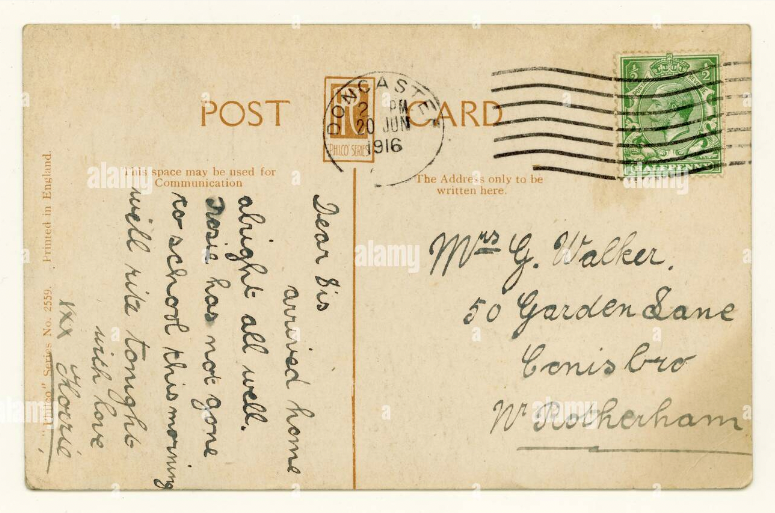 POST CARD
DONCASTER
2 PM
20 JUN
1916
½ ½
This space may be used for
Communication
The Address only to be
written here.
Dear Sis
arrived home
alright all well.
Rosie has not gone
to school this morning
will rite tonight
with love
xxx Florrie
Mrs G. Walker.
50 Garden Lane
Conisbro
Nr Rotherham
"Philco" Series No. 2559. Printed in England.
PHILCO SERIES
alamy